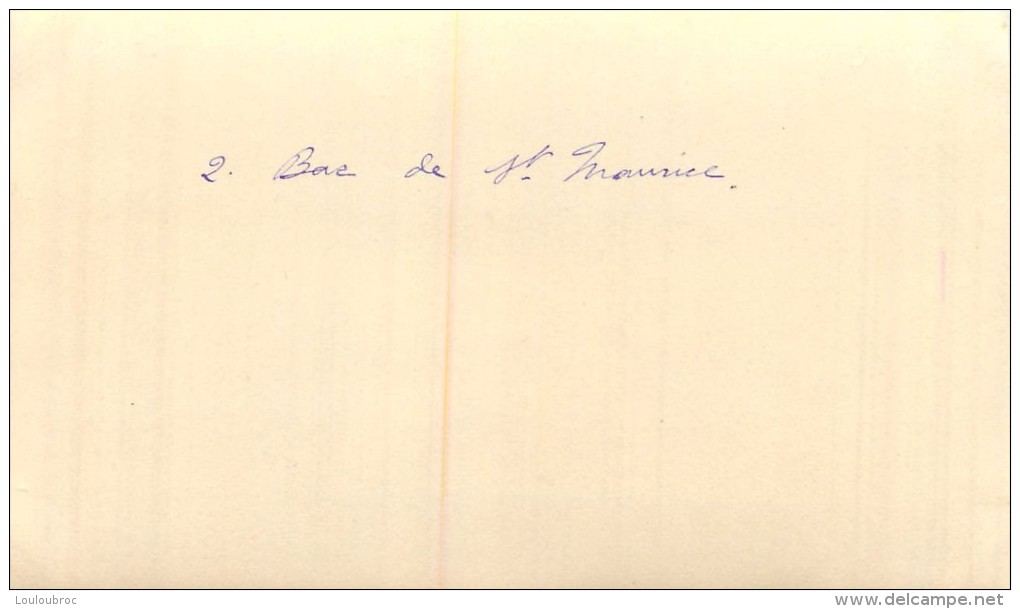 2. Bac de St. Maurice.
Louloubroc
www.delcampe.net